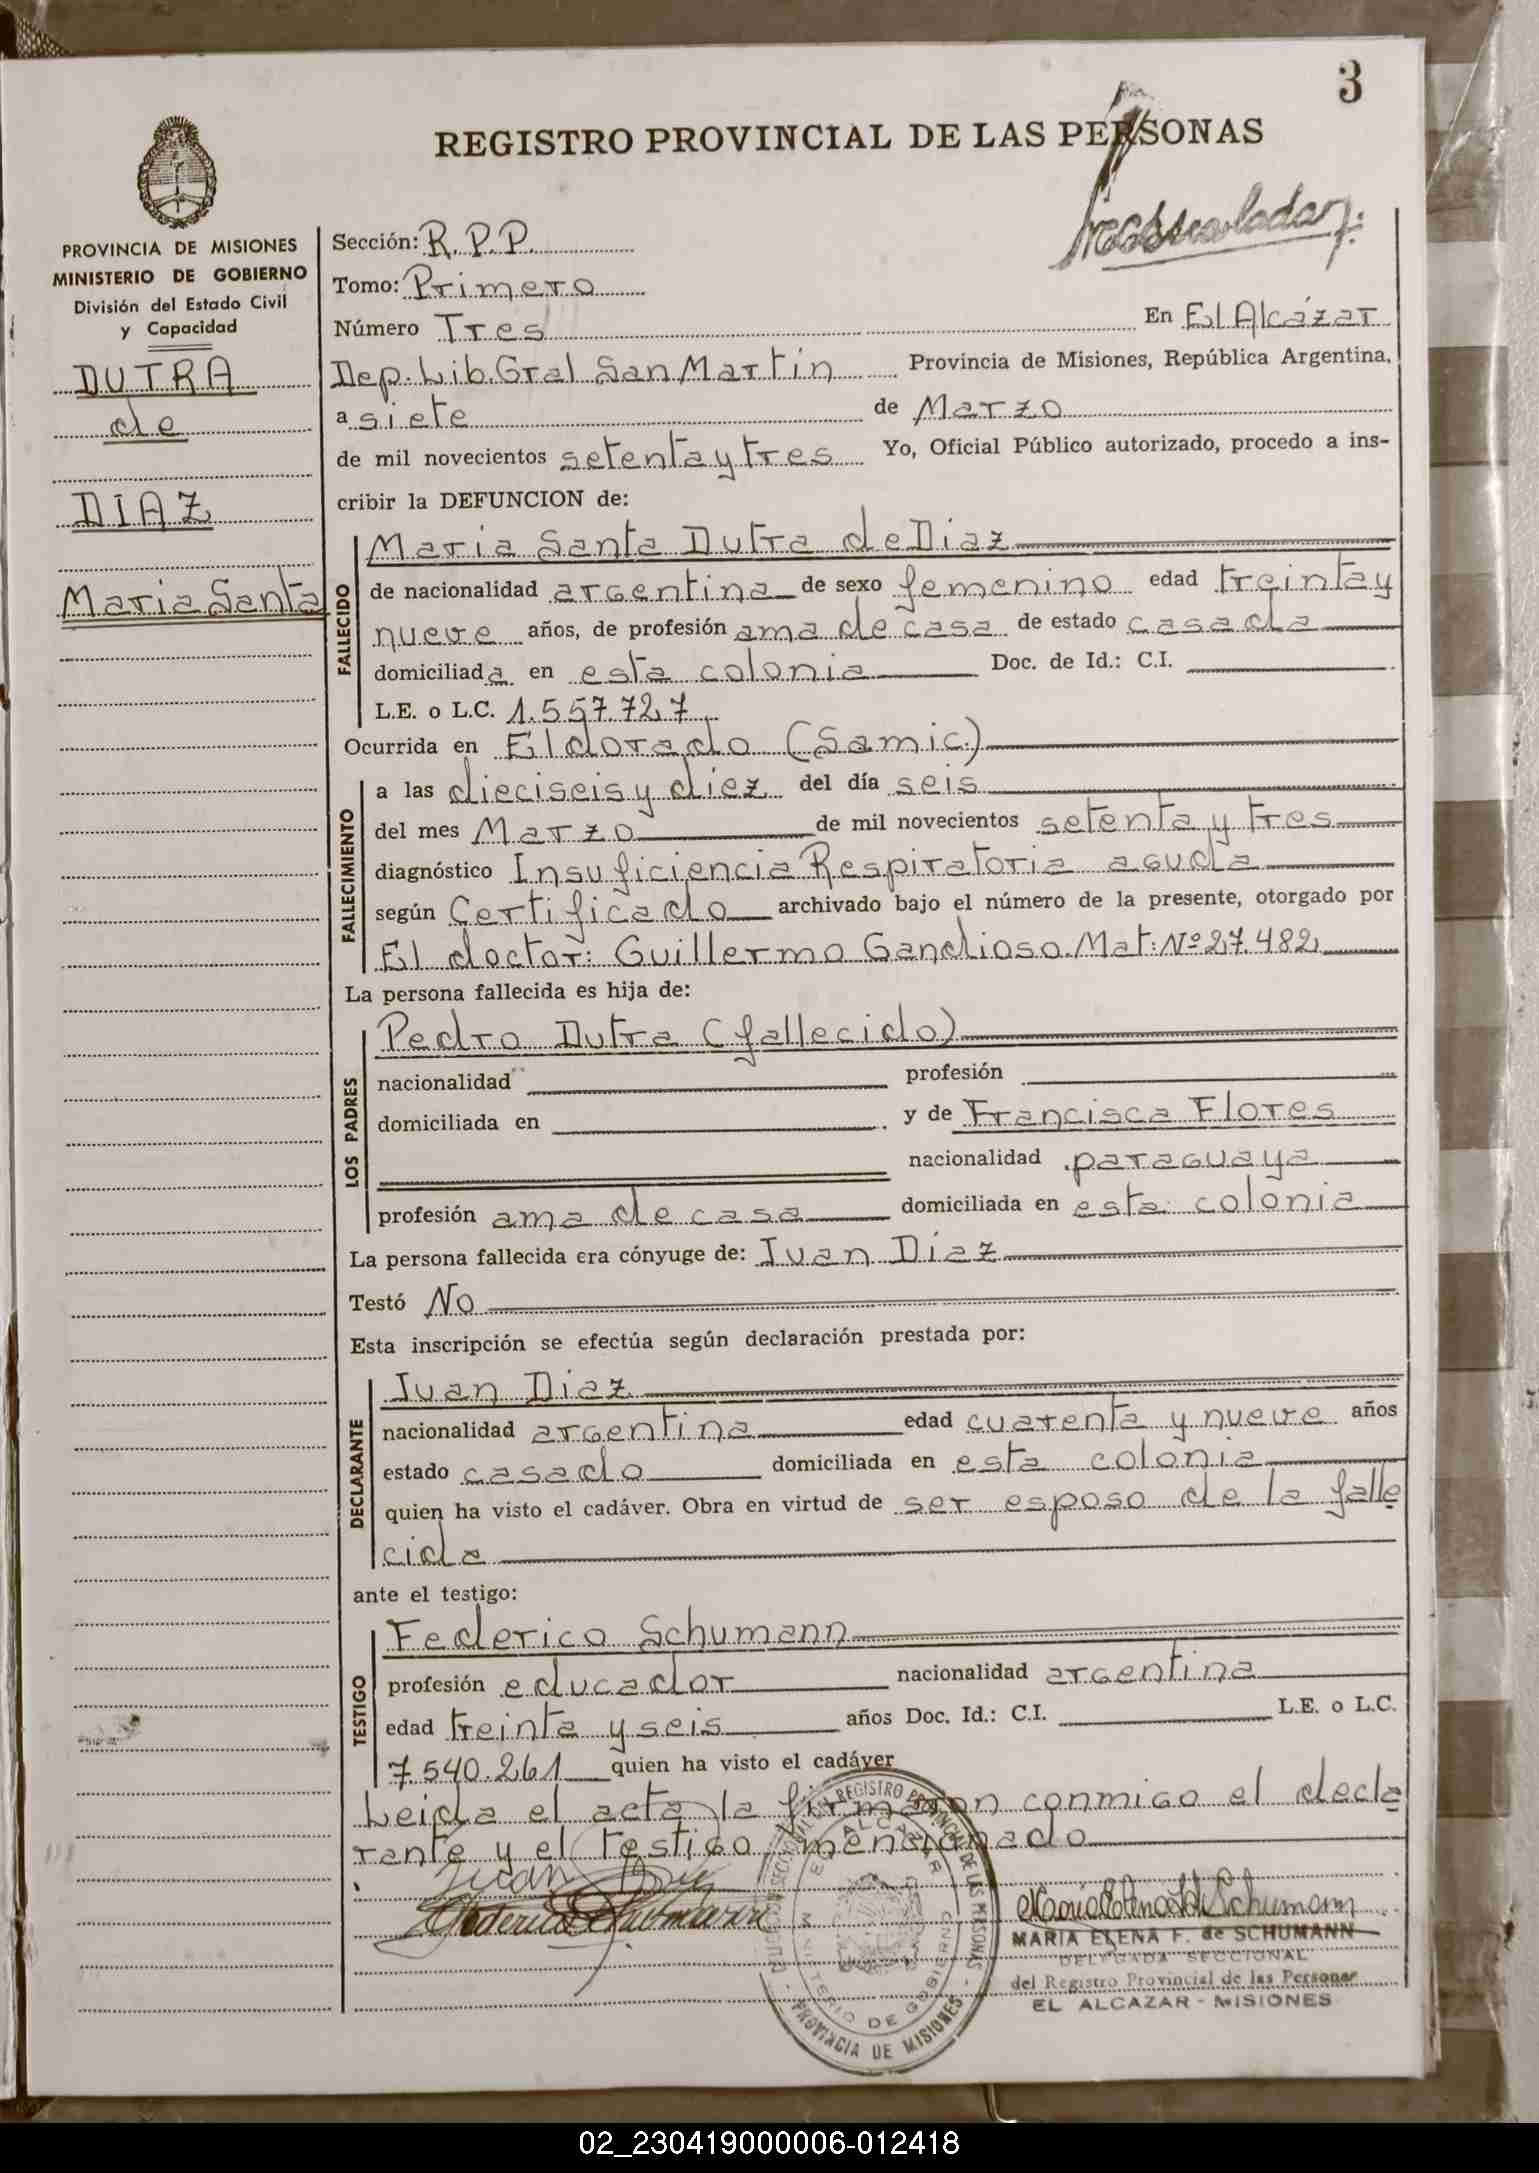 3
REGISTRO PROVINCIAL DE LAS PERSONAS
PROVINCIA DE MISIONES
MINISTERIO DE GOBIERNO
División del Estado Civil
y Capacidad
DUTRA
de
DIAZ
Maria Santa
Sección: R.P.P.
Tomo: Primero
Número Tres En El Alcázar
Dep. Lib. Gral San Martín Provincia de Misiones, República Argentina,
a siete de Marzo
de mil novecientos setenta y tres Yo, Oficial Público autorizado, procedo a ins-
cribir la DEFUNCION de:
FALLECIDO
Maria Santa Dutra de Diaz
de nacionalidad argentina de sexo femenino edad treinta y
nueve años, de profesión ama de casa de estado casada
domiciliada en esta colonia Doc. de Id.: C.I.
L.E. o L.C. 1.557.727
Ocurrida en Eldorado (Samic)
FALLECIMIENTO
a las dieciseis y diez del día seis
del mes Marzo de mil novecientos setenta y tres
diagnóstico Insuficiencia Respiratoria aguda
según Certificado archivado bajo el número de la presente, otorgado por
El doctor: Guillermo Gandioso. Mat: Nº 27.482
La persona fallecida es hija de:
LOS PADRES
Pedro Dutra (fallecido)
nacionalidad profesión
domiciliada en y de Francisca Flores
nacionalidad paraguaya
profesión ama de casa domiciliada en esta colonia
La persona fallecida era cónyuge de: Juan Diaz
Testó No
Esta inscripción se efectúa según declaración prestada por:
DECLARANTE
Juan Diaz
nacionalidad argentina edad cuarenta y nueve años
estado casado domiciliada en esta colonia
quien ha visto el cadáver. Obra en virtud de ser esposo de la falle
cida
ante el testigo:
TESTIGO
Federico Schumann
profesión educador nacionalidad argentina
edad treinta y seis años Doc. Id.: C.I. L.E. o L.C.
7.540.261 quien ha visto el cadáver
Leida el acta la firmaron conmigo el decla
rante y el testigo mencionado
Juan Diaz
Federico Schumann
REGISTRO PROVINCIAL DE LAS PERSONAS
EL ALCAZAR
MINISTERIO DE GOBIERNO
PROVINCIA DE MISIONES
MARIA ELENA F. de SCHUMANN
DELEGADA SECCIONAL
del Registro Provincial de las Personas
EL ALCAZAR - MISIONES
02_230419000006-012418